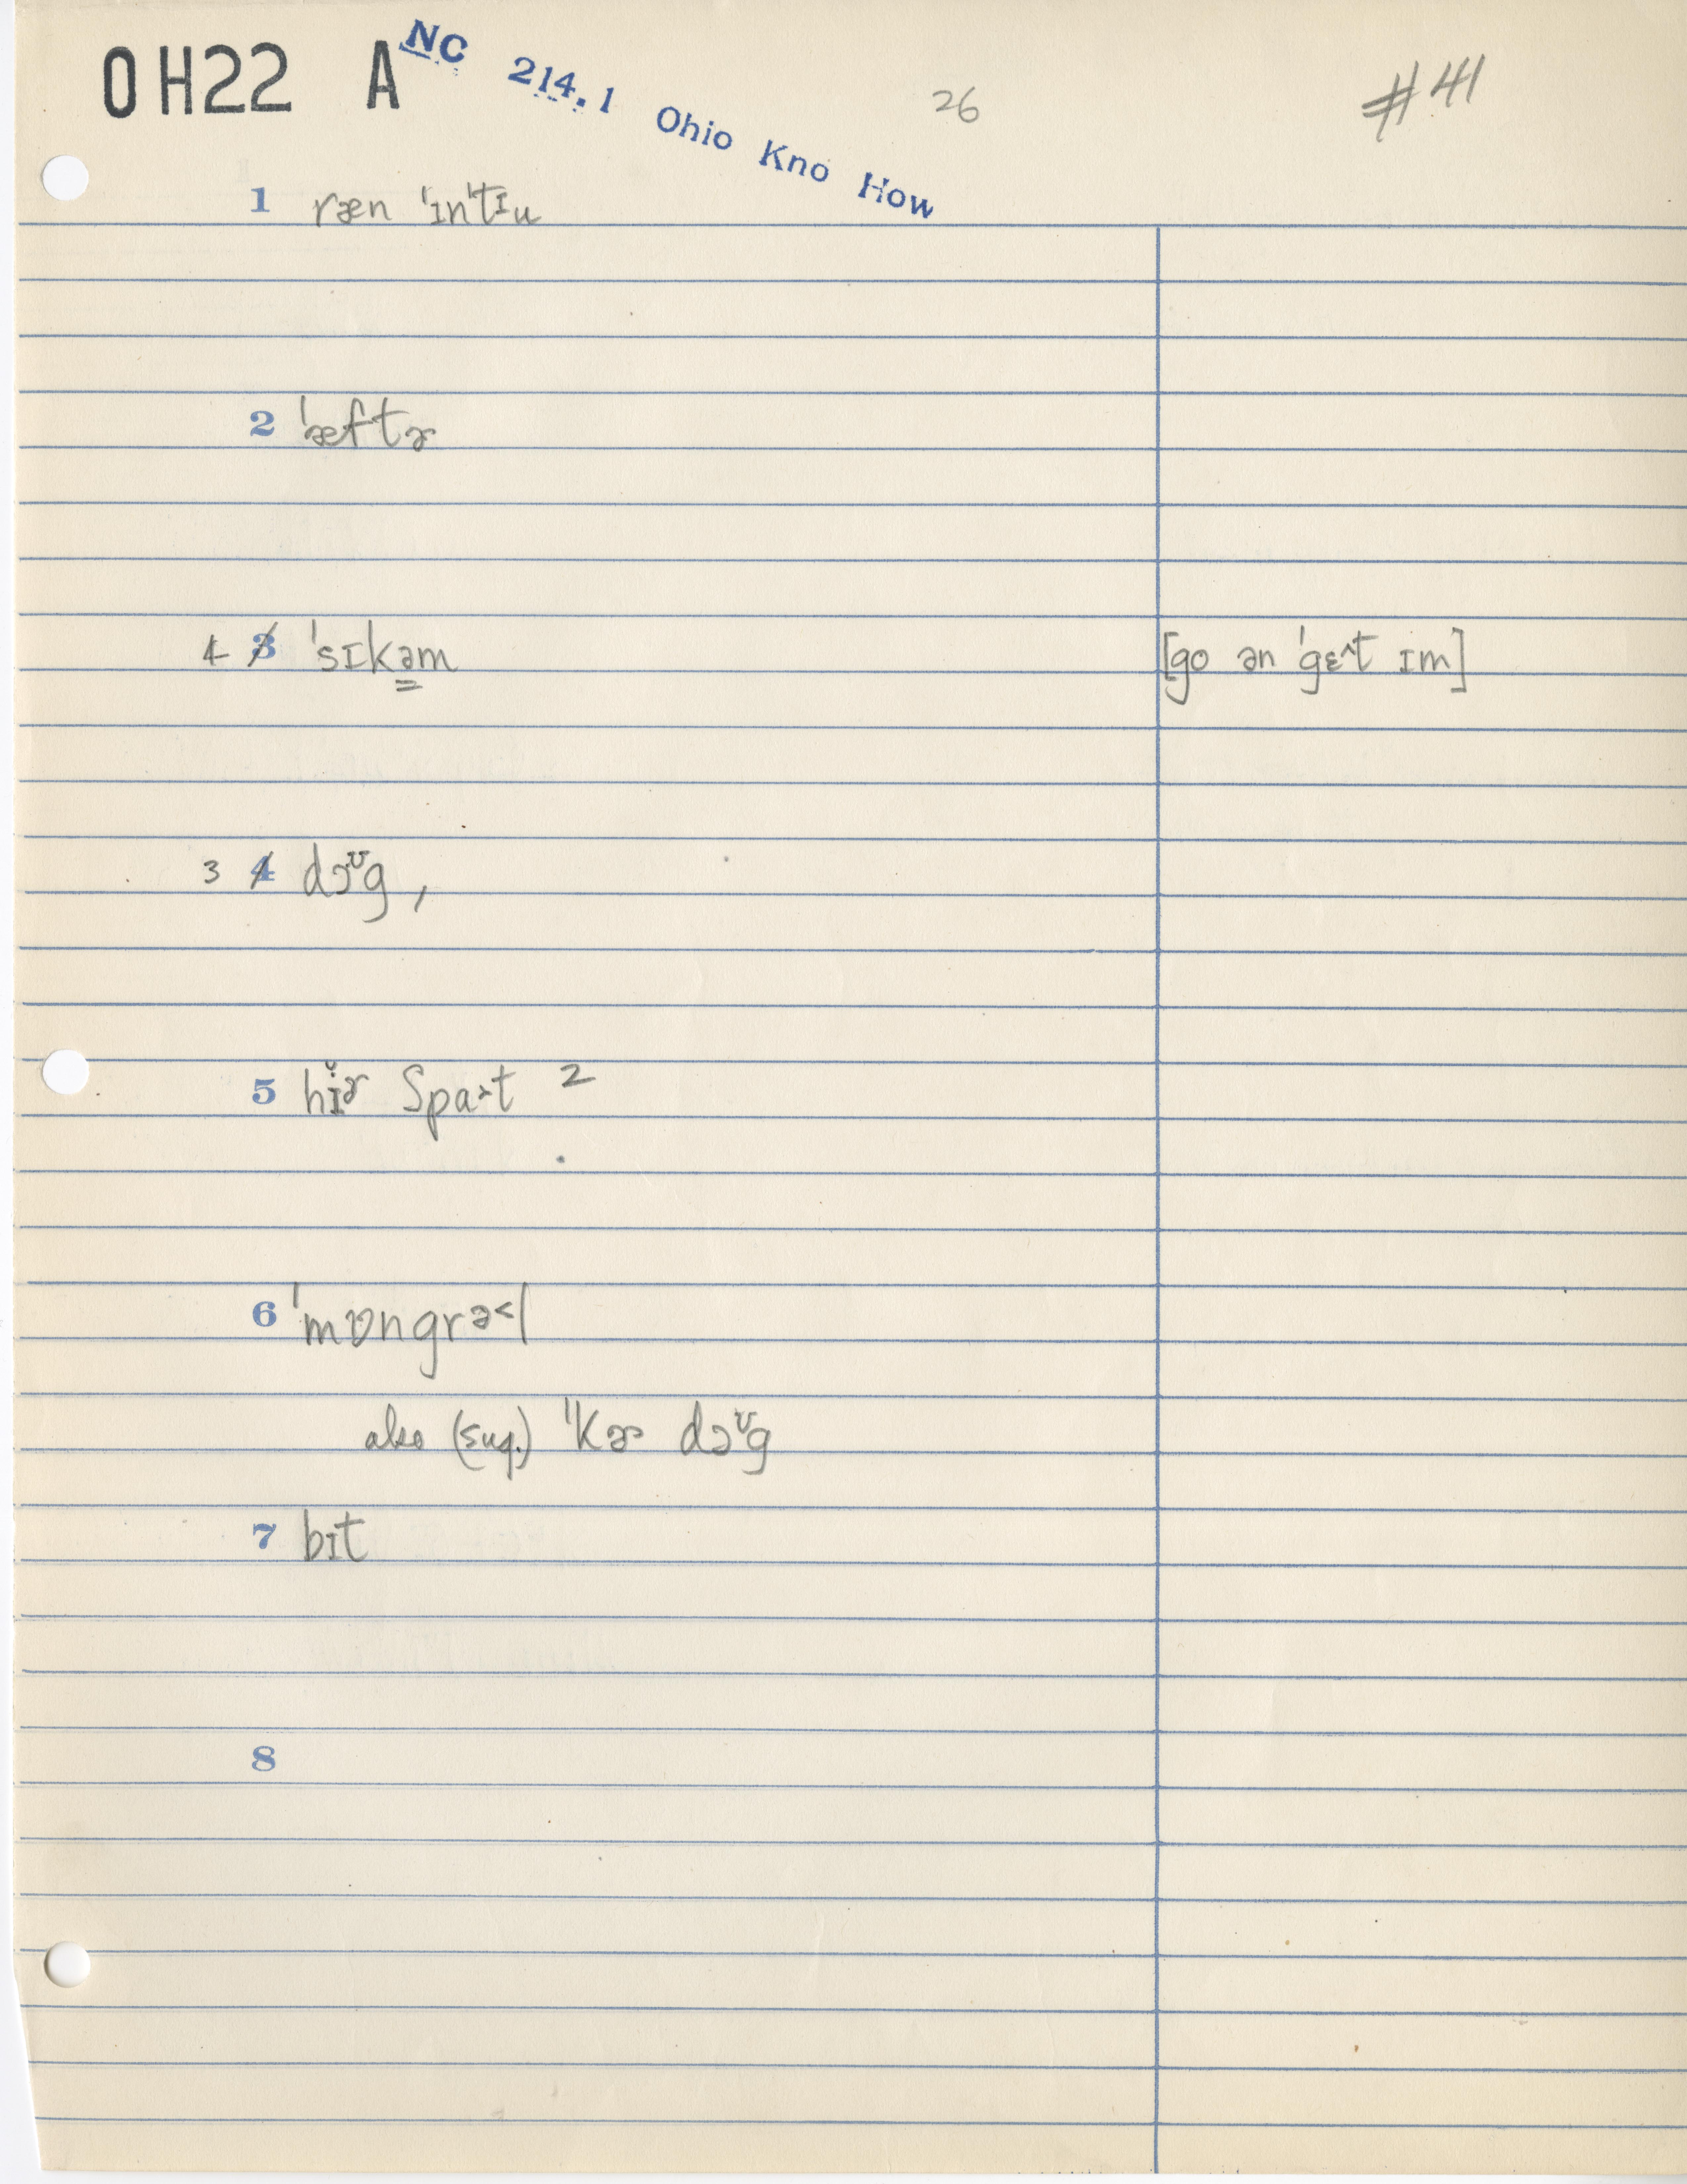 OH22 A NC 214.1 Ohio Kno How 26 #41
1 ræn ˈɪnˈtᶦu
2 ˈæftɚ
4 3 ˈsɪkəm [go ən ˈgɛ^t ɪm]
3 4 dɔᶷg,
5 hɪ̆ɚ Spa˃t 2
6 ˈmɒngrə˂l
also (sug.) ˈkɚ dɔᶷg
7 bɪt
8